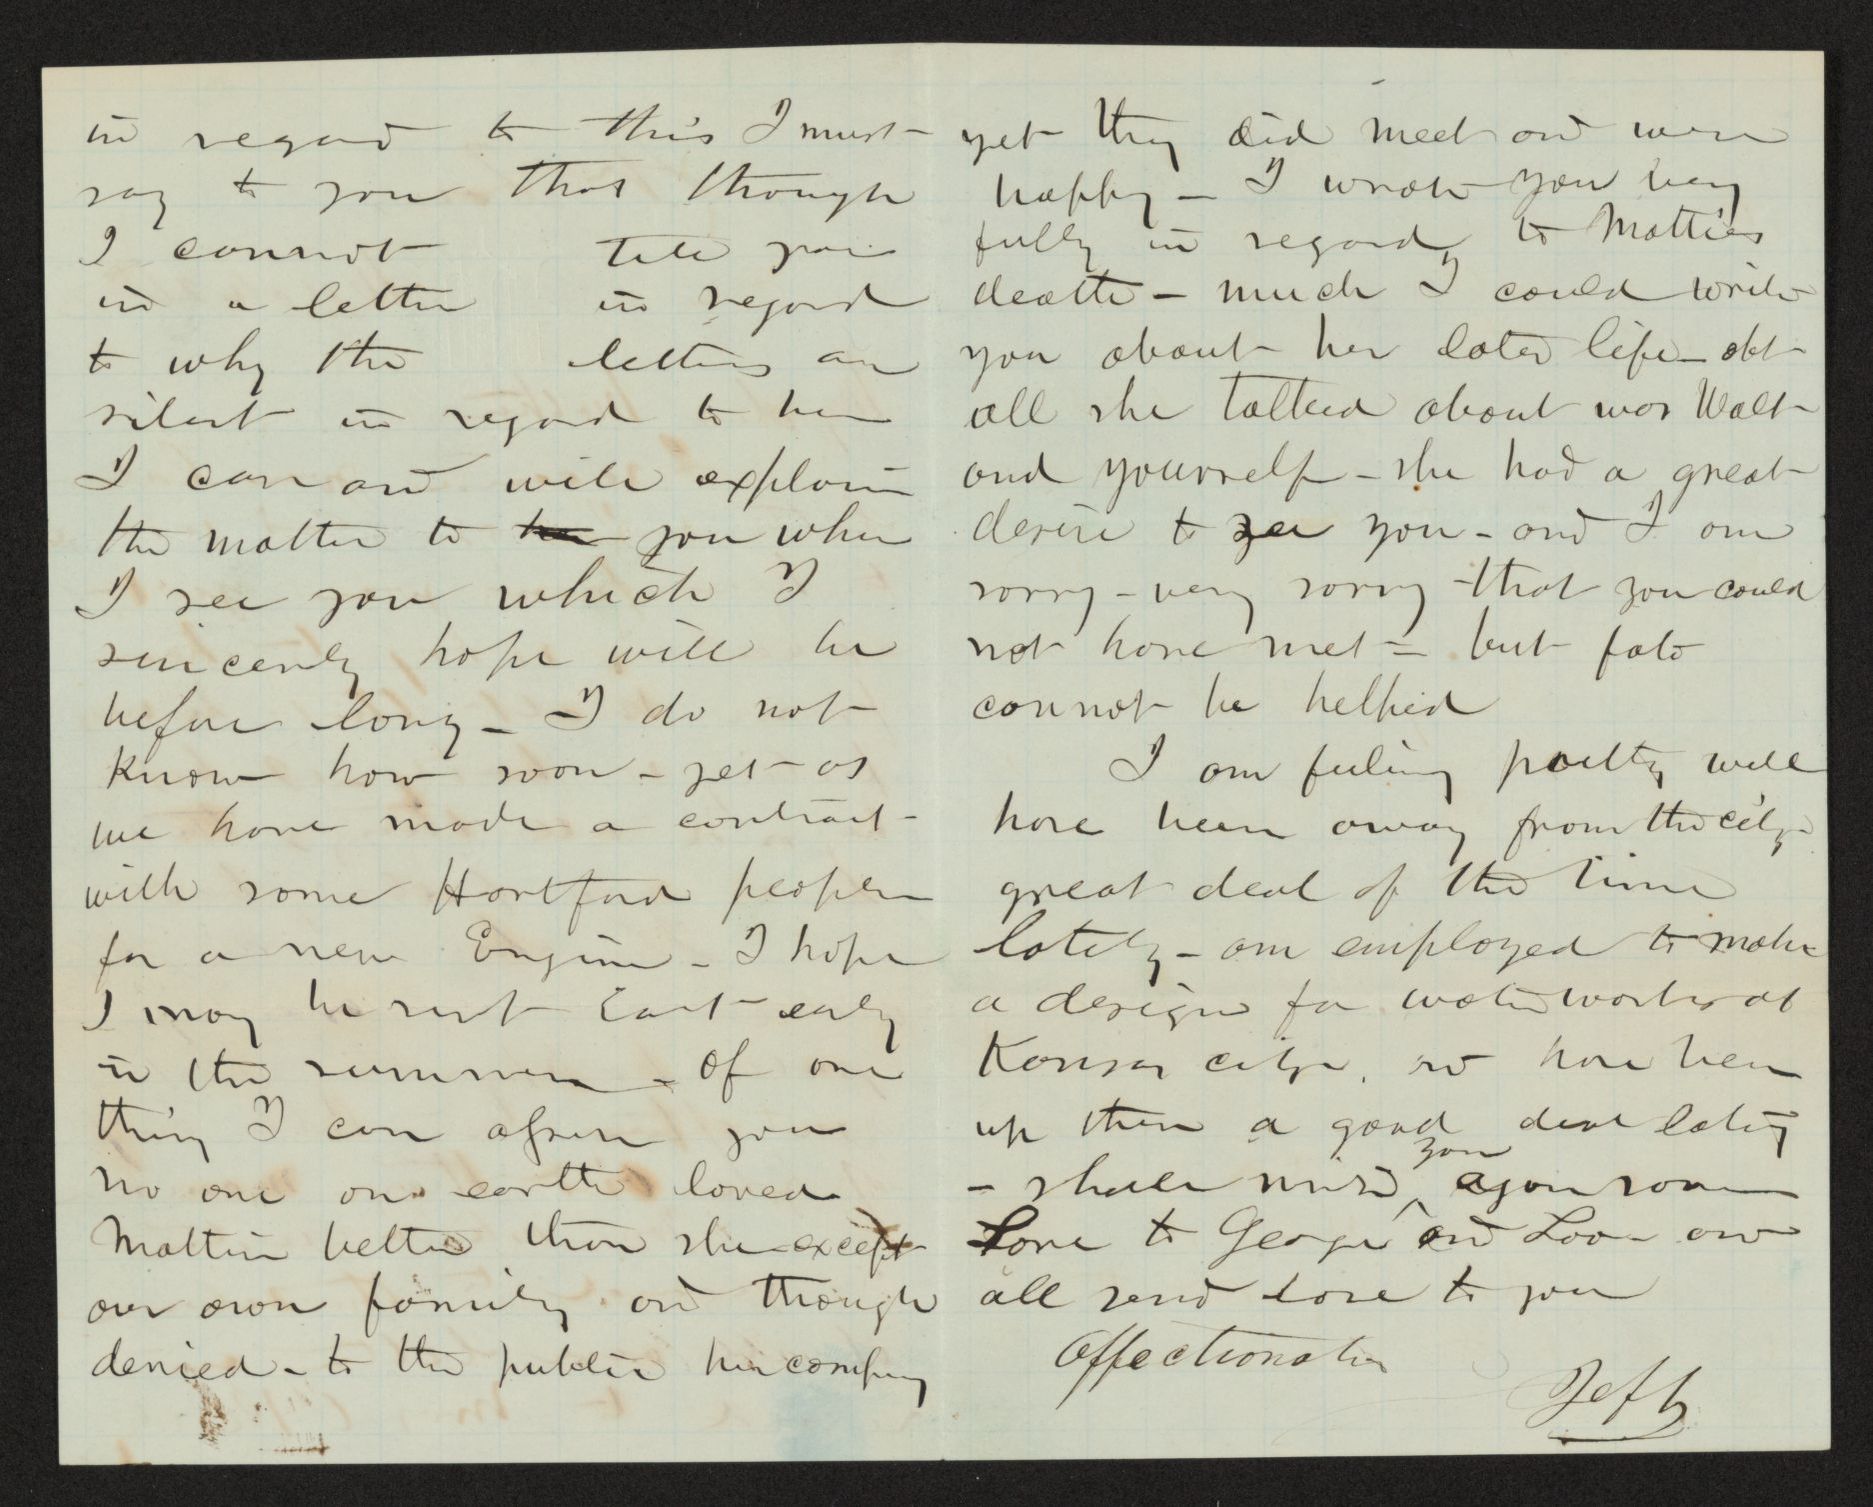 in regard to this I must
say to you that though
I cannot tell you
in a letter in regard
to why the letters are
silent in regard to her
I can and will explain
the matter to her you when
I see you which I
sincerely hope will be
before long – I do not
know how soon – yet as
we have made a contract
with some Hartford people
for a new Engine – I hope
I may be sent East early
in the summer – Of one
thing I can assure you
no one on earth loved
Mattie better than she except
our own family and though
denied – to the public her company
yet they did meet and were
happy – I wrote you very
fully in regard to Matties
death – much I could write
you about her later life –
all she talked about was Walt
and yourself – she had a great
desire to see you – and I am
sorry – very sorry that you could
not have met – but fate
cannot be helped
I am feeling pretty well
have been away from the city
great deal of the time
lately – am employed to make
a design for water works at
Kansas city. so have been
up there a good deal lately
– shall write you again soon
Love to George and Loo – we
all send love to you
Affectionately
Jeff